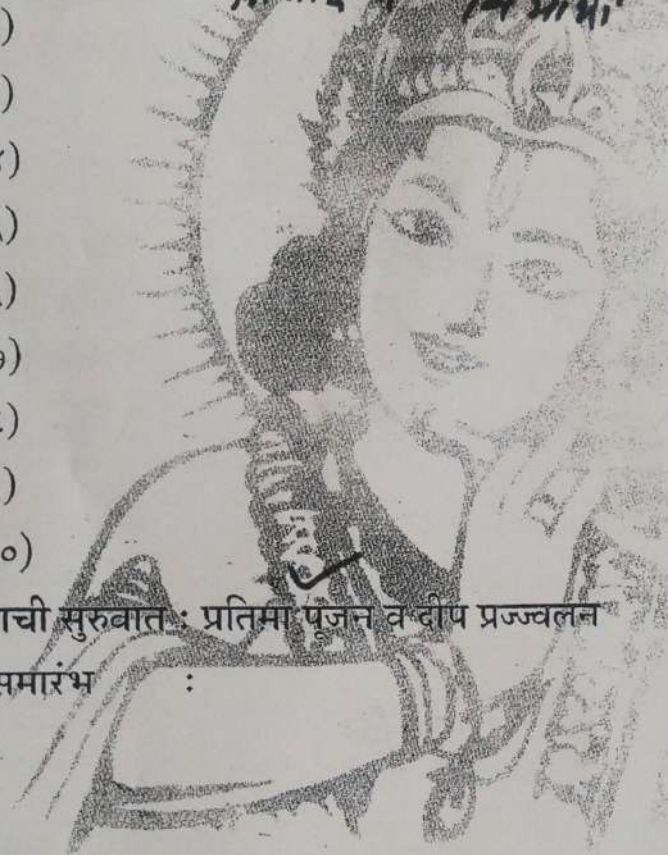 )
)
)
)
)
७)
)
)
०)
ाची सुरुवात : प्रतिमा पूजन व दीप प्रज्ज्वलन
समारंभ :